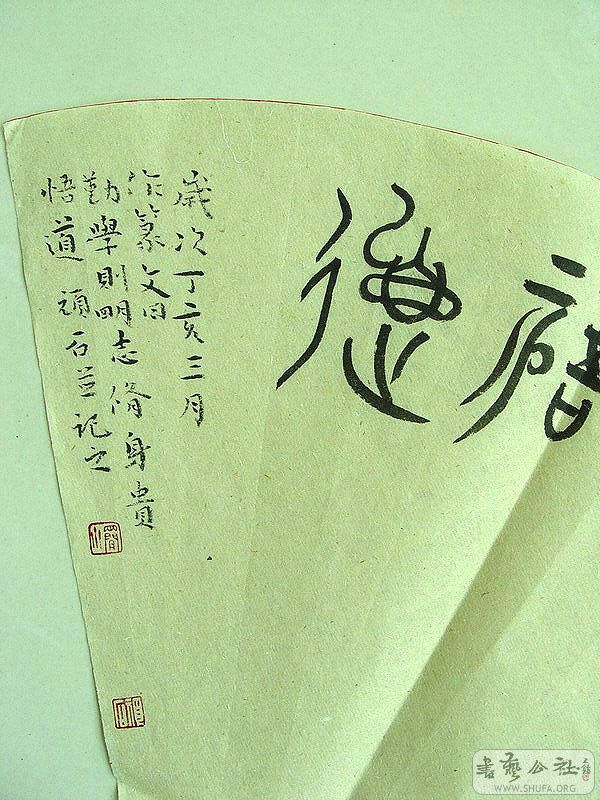 歲次丁亥三月
作篆文曰
勤學則明志脩身貴
悟道 頑石並記之
書藝公社
WWW.SHUFA.ORG